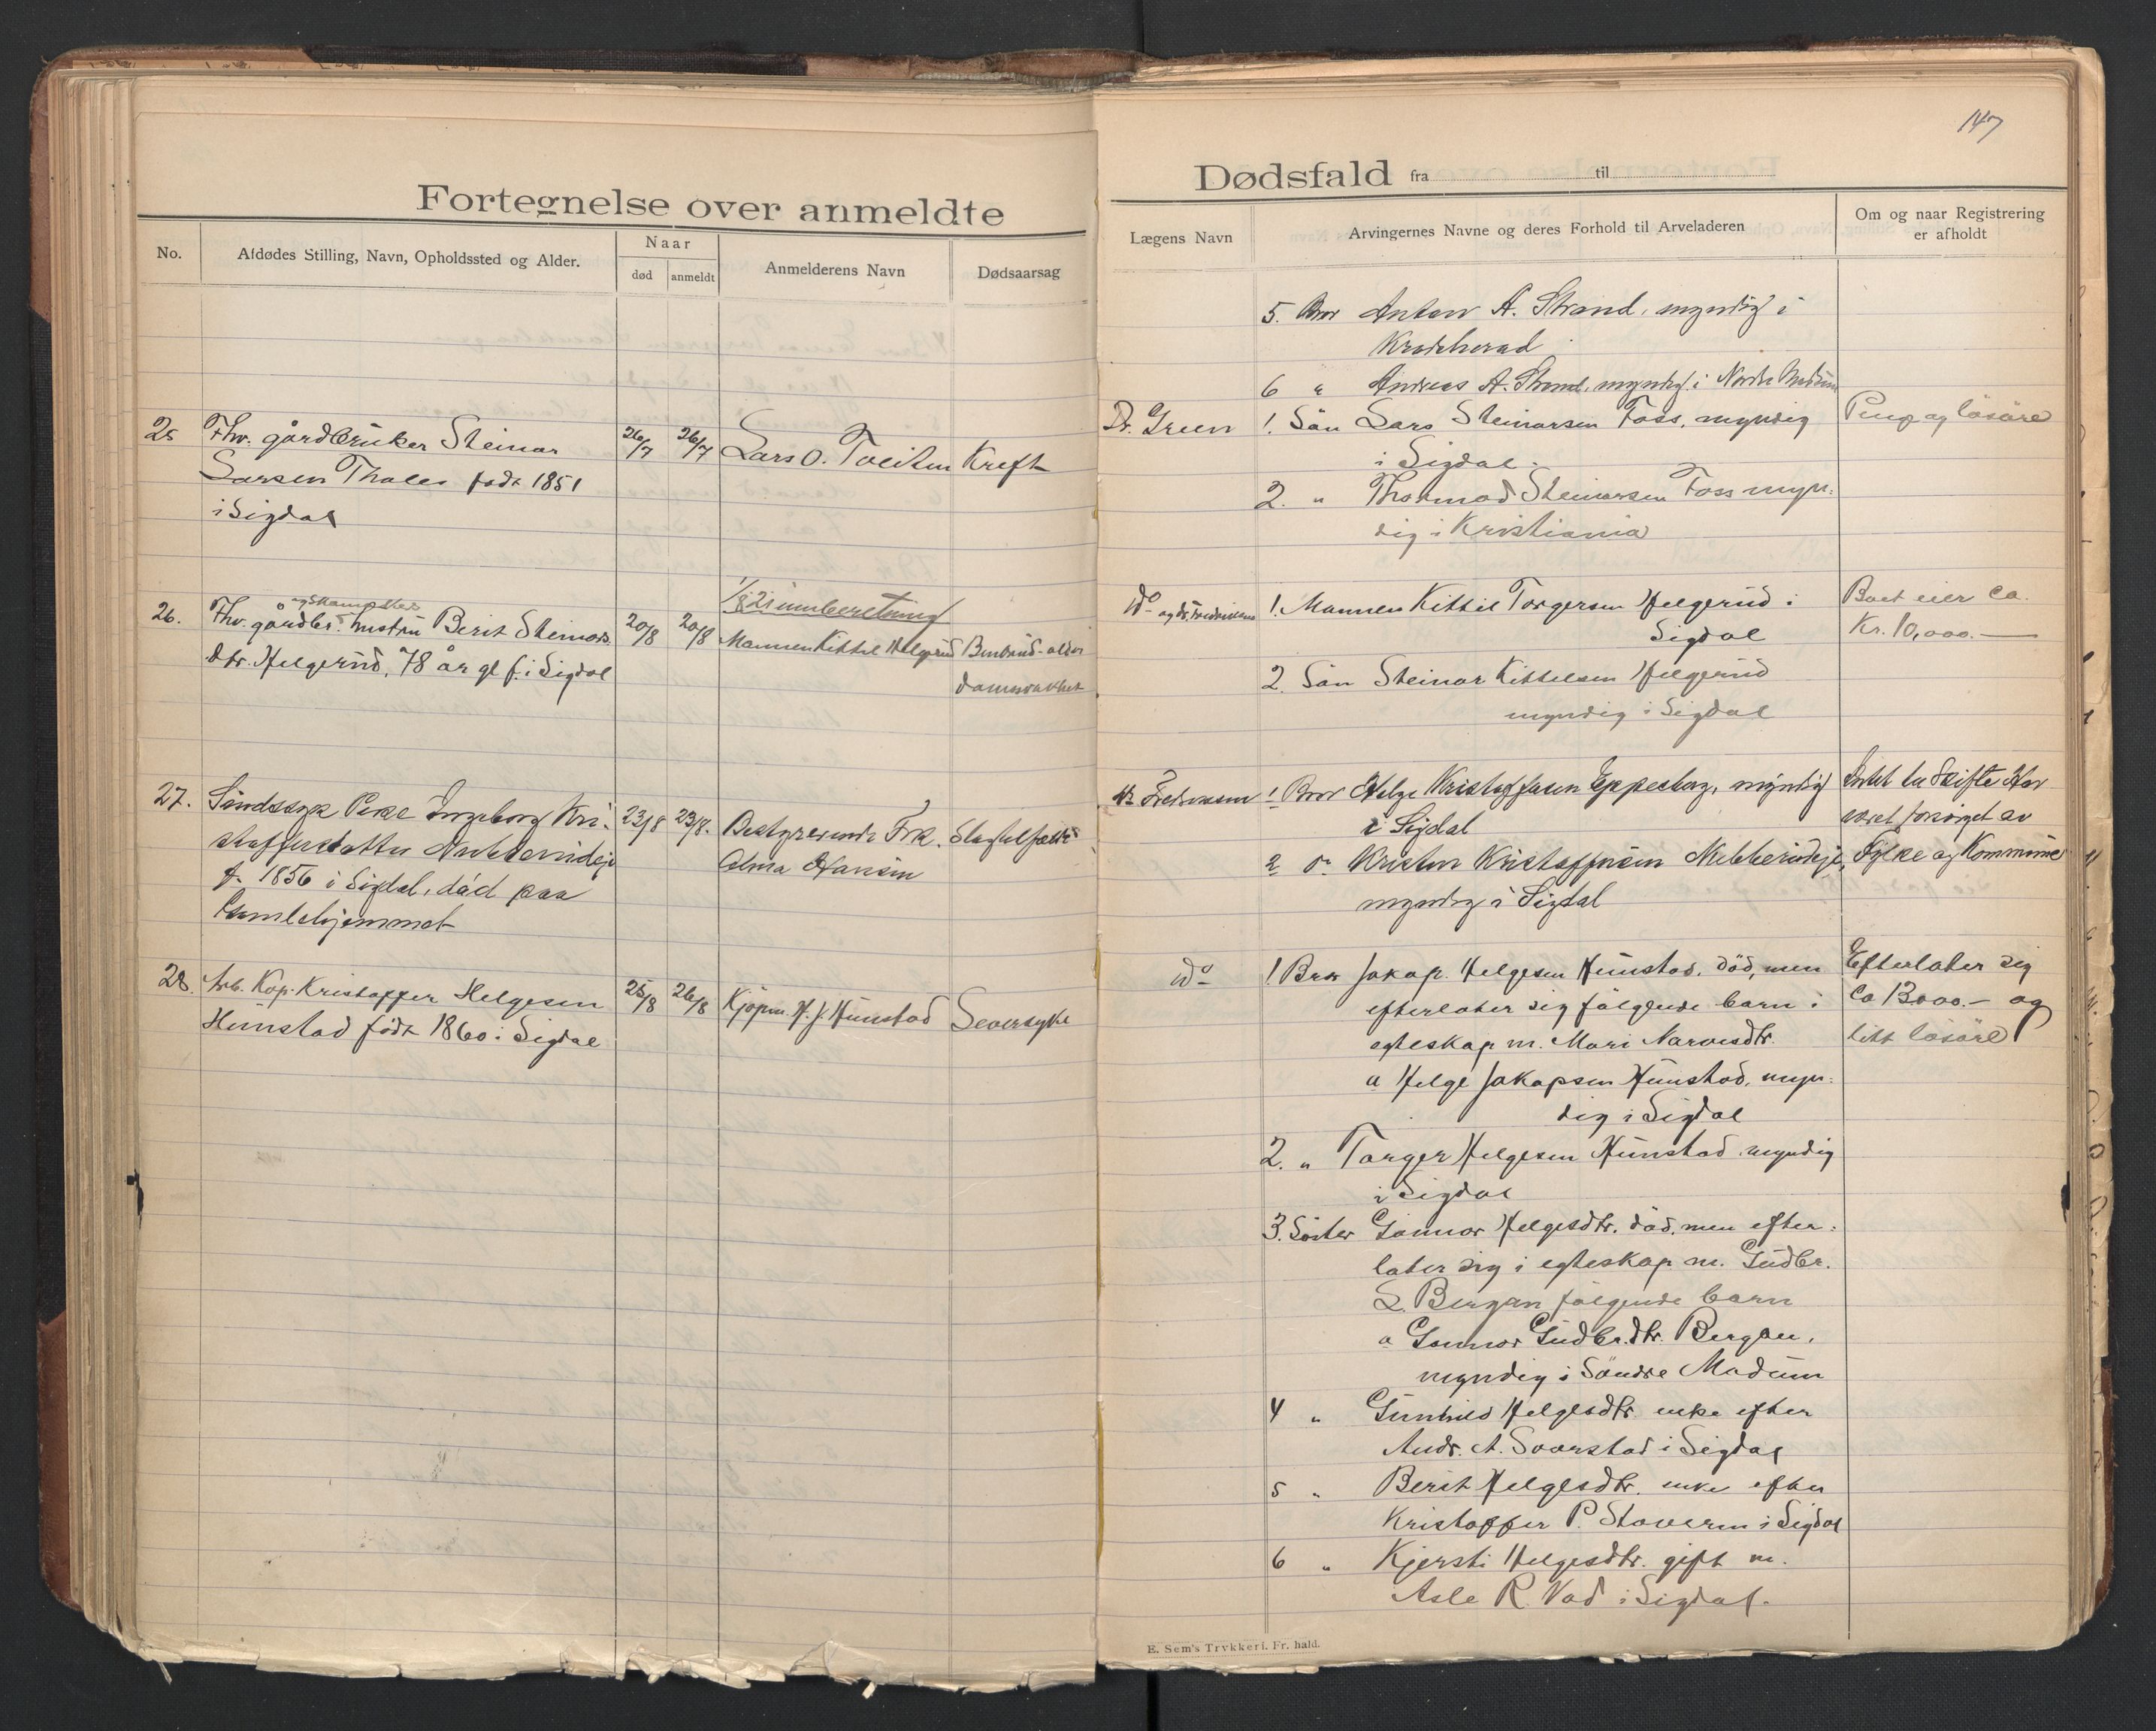 147
Fortegnelse over anmeldte
Dødsfald fra til
No.
Afdødes Stilling, Navn, Opholdssted og Alder.
Naar
død
anmeldt
Anmelderens Navn
Dødsaarsag
Lægens Navn
Arvingernes Navne og deres Forhold til Arveladeren
Om og naar Registrering
er afholdt
5. Bror Anton A. Strand, myndig i
Krødsherad
6 " Andreas A. Strand, myndig i Nordre Modum
25 Fhv. gårdbruker Steinar
Larsen Thales født 1851
i Sigdal
26/7
26/7
Lars O. Tveiten
Kreft
Dr. Green
1. Søn Lars Steinarsen Foss, myndig
i Sigdal.
2. " Thormod Steinarsen Foss myn:
dig i Kristiania
Penge og løsøre
1/8 21 innberetning
26. Fhv. gårdbr. hustru Berit Steinars
dtr. Helgerud, 78 år gl f. i Sigdal
20/8
20/8
Mannen Kittel Helgerud
Benbrud-alder
domsvakhet
Do og dr. Fredriksen
1. Mannen Kittil Torgersen Helgerud i
Sigdal
2. Søn Steinar Kittelsen Helgerud
myndig i Sigdal
Boet eier ca.
Kr. 10,000.—
27. Sindssyk Pike Ingeborg Kri-
stoffersdatter Nubberudeje
f. 1856 i Sigdal, død paa
Gamlehjemmet
23/8
23/8.
Bestyrerinde Frk.
Alma Hansen
Slagtilfælde
Dr Fredriksen
1 Bror Helge Kristoffersen Eppeberg, myndig
i Sigdal
2 do Kristen Kristoffersen Nubberudeje,
myndig i Sigdal
Intet til Skifte Har
været forsørget av
Fylke og Kommune
28. Arb. Kop. Kristoffer Helgesen
Hunstad født 1860 i Sigdal
25/8
26/8
Kjøpm. H. J. Hunstad
Leversyke
do
1 Bror Jakop. Helgesen Hunstad. død, men
efterlater sig følgende barn i
egteskap m. Mari Narvesdtr.
a Helge Jakopsen Hunstad, myn:
dig i Sigdal
2. " Torger Helgesen Hunstad myndig
i Sigdal
3. Søster Gunnor Helgesdtr. død, men efter:
later sig i egteskap m. Gudbr.
L. Bergan følgende barn
a Gunnor Gudbr.dtr. Bergan,
myndig i Søndre Modum
4 " Gunhild Helgesdtr. enke efter
Andr. A. Soorstad i Sigdal
5 " Berit Helgesdtr. enke efter
Kristoffer P. Staveren i Sigdal
6 " Kjersti Helgesdtr. gift m.
Asle R. Vad i Sigdal.
Efterlater sig
ca 13000.- og
litt løsøre
E. Sem's Trykkeri. Fr. hald.